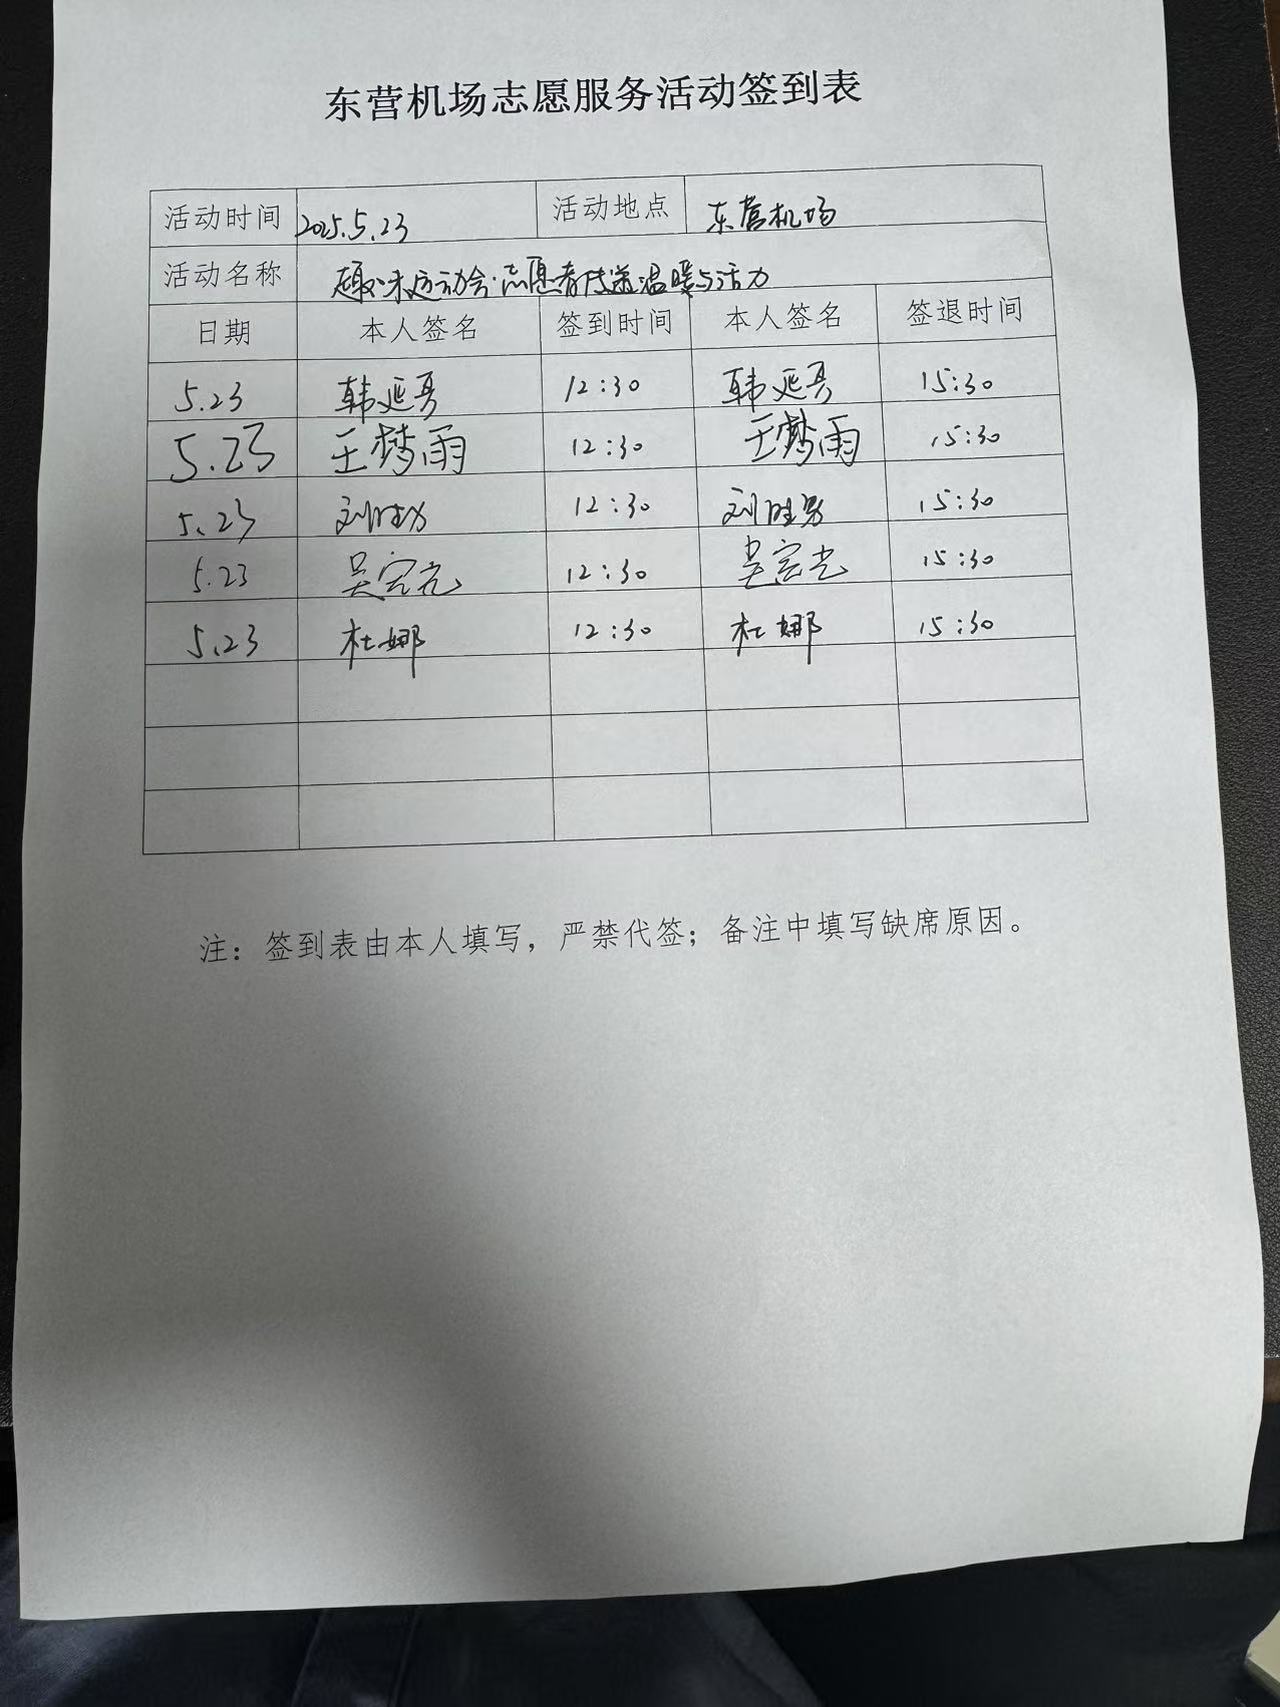 东营机场志愿服务活动签到表
活动时间 2025.5.23 活动地点 东营机场
活动名称 趣味运动会·志愿者传递温暖与活力
日期 本人签名 签到时间 本人签名 签退时间
5.23 韩延勇 12:30 韩延勇 15:30
5.23 王梦雨 12:30 王梦雨 15:30
5.23 刘胜男 12:30 刘胜男 15:30
5.23 吴宗光 12:30 吴宗光 15:30
5.23 杜娜 12:30 杜娜 15:30
注：签到表由本人填写，严禁代签；备注中填写缺席原因。